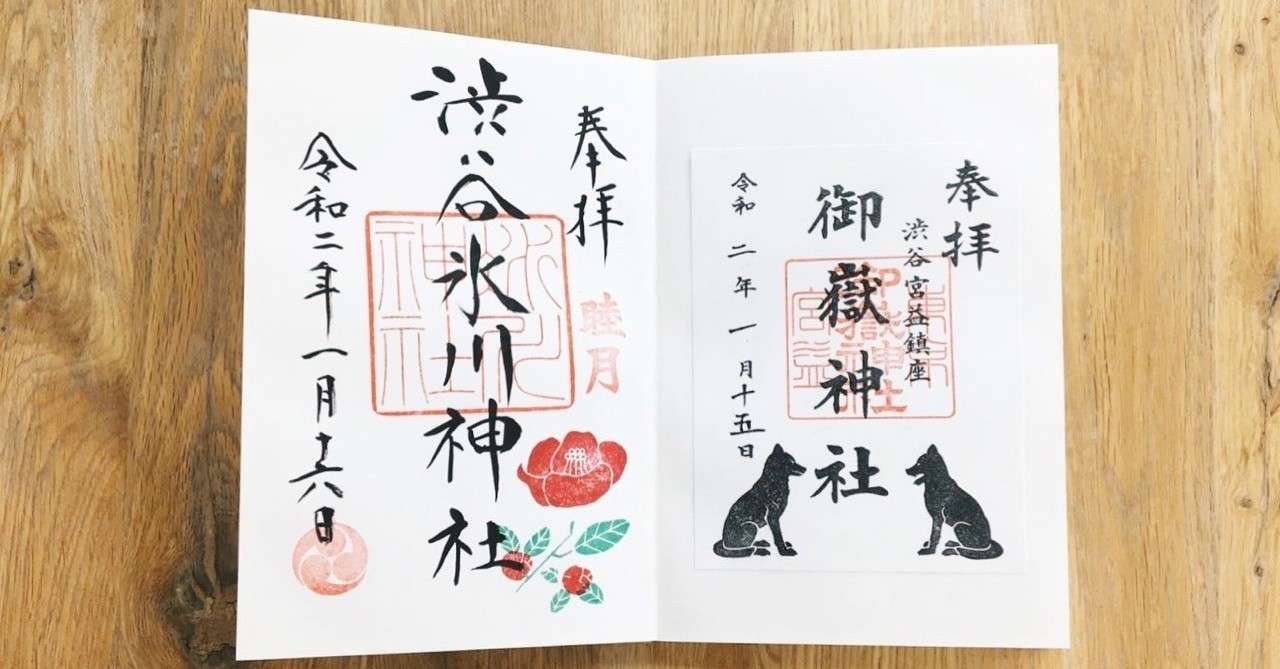 奉拝
睦月
渋谷氷川神社
令和二年一月十六日
奉拝
渋谷宮益鎮座
御嶽神社
令和二年一月十五日